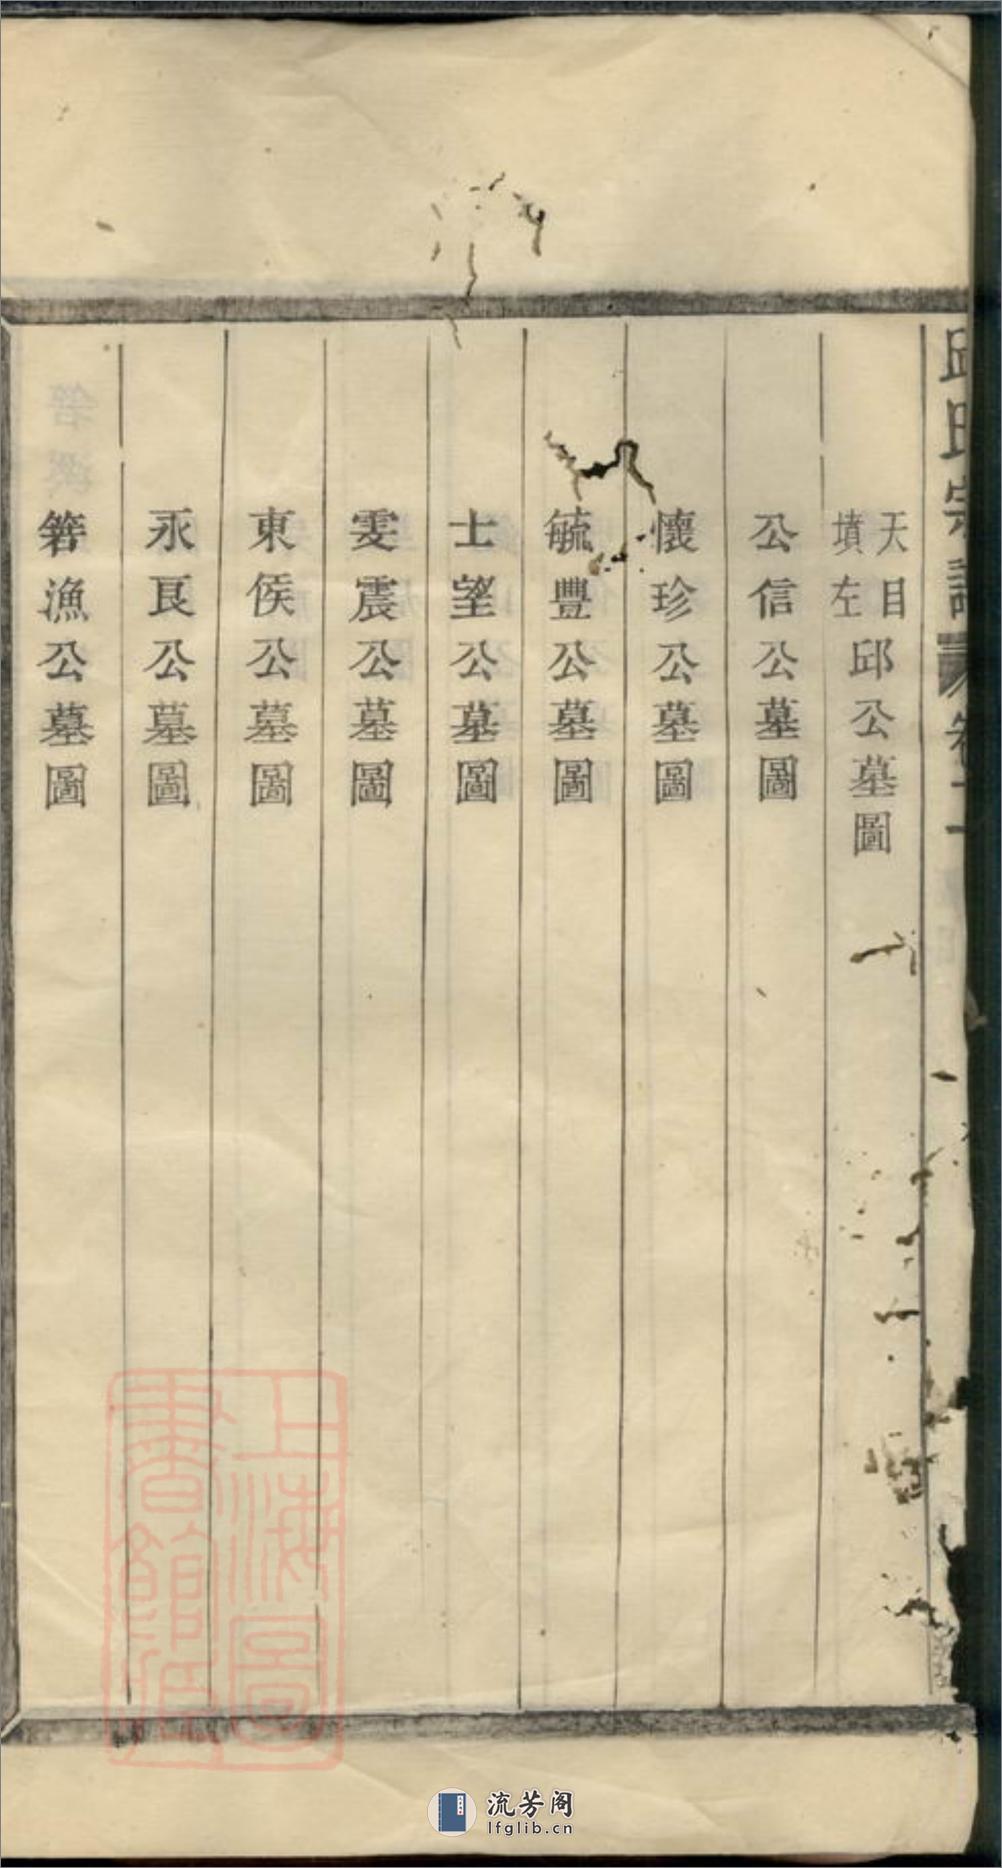 邱氏宗譜 卷十一
天目墳左邱公墓圖
公信公墓圖
懷珍公墓圖
毓豐公墓圖
士望公墓圖
雯震公墓圖
東侯公墓圖
永良公墓圖
箬漁公墓圖
上海圖書館藏
流芳阁
lfglib.cn